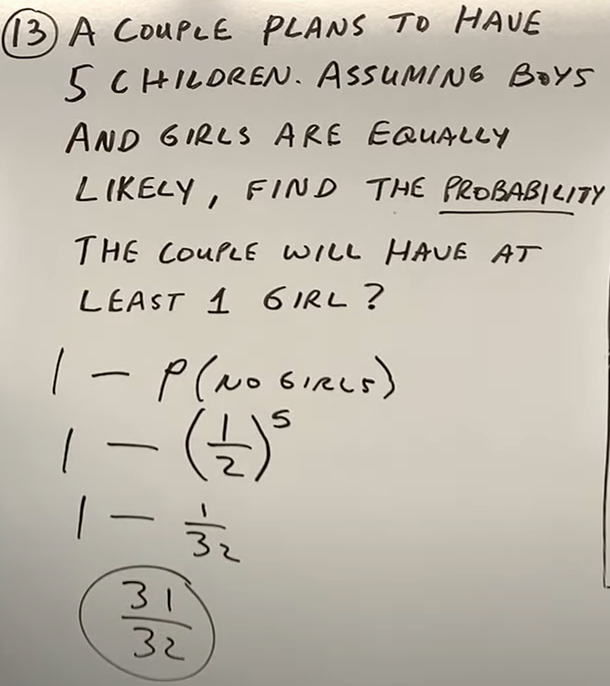 13 A COUPLE PLANS TO HAVE
5 CHILDREN. ASSUMING BOYS
AND GIRLS ARE EQUALLY
LIKELY, FIND THE PROBABILITY
THE COUPLE WILL HAVE AT
LEAST 1 GIRL?
1 - P(NO GIRLS)
1 - (1/2)^5
1 - 1/32
31/32